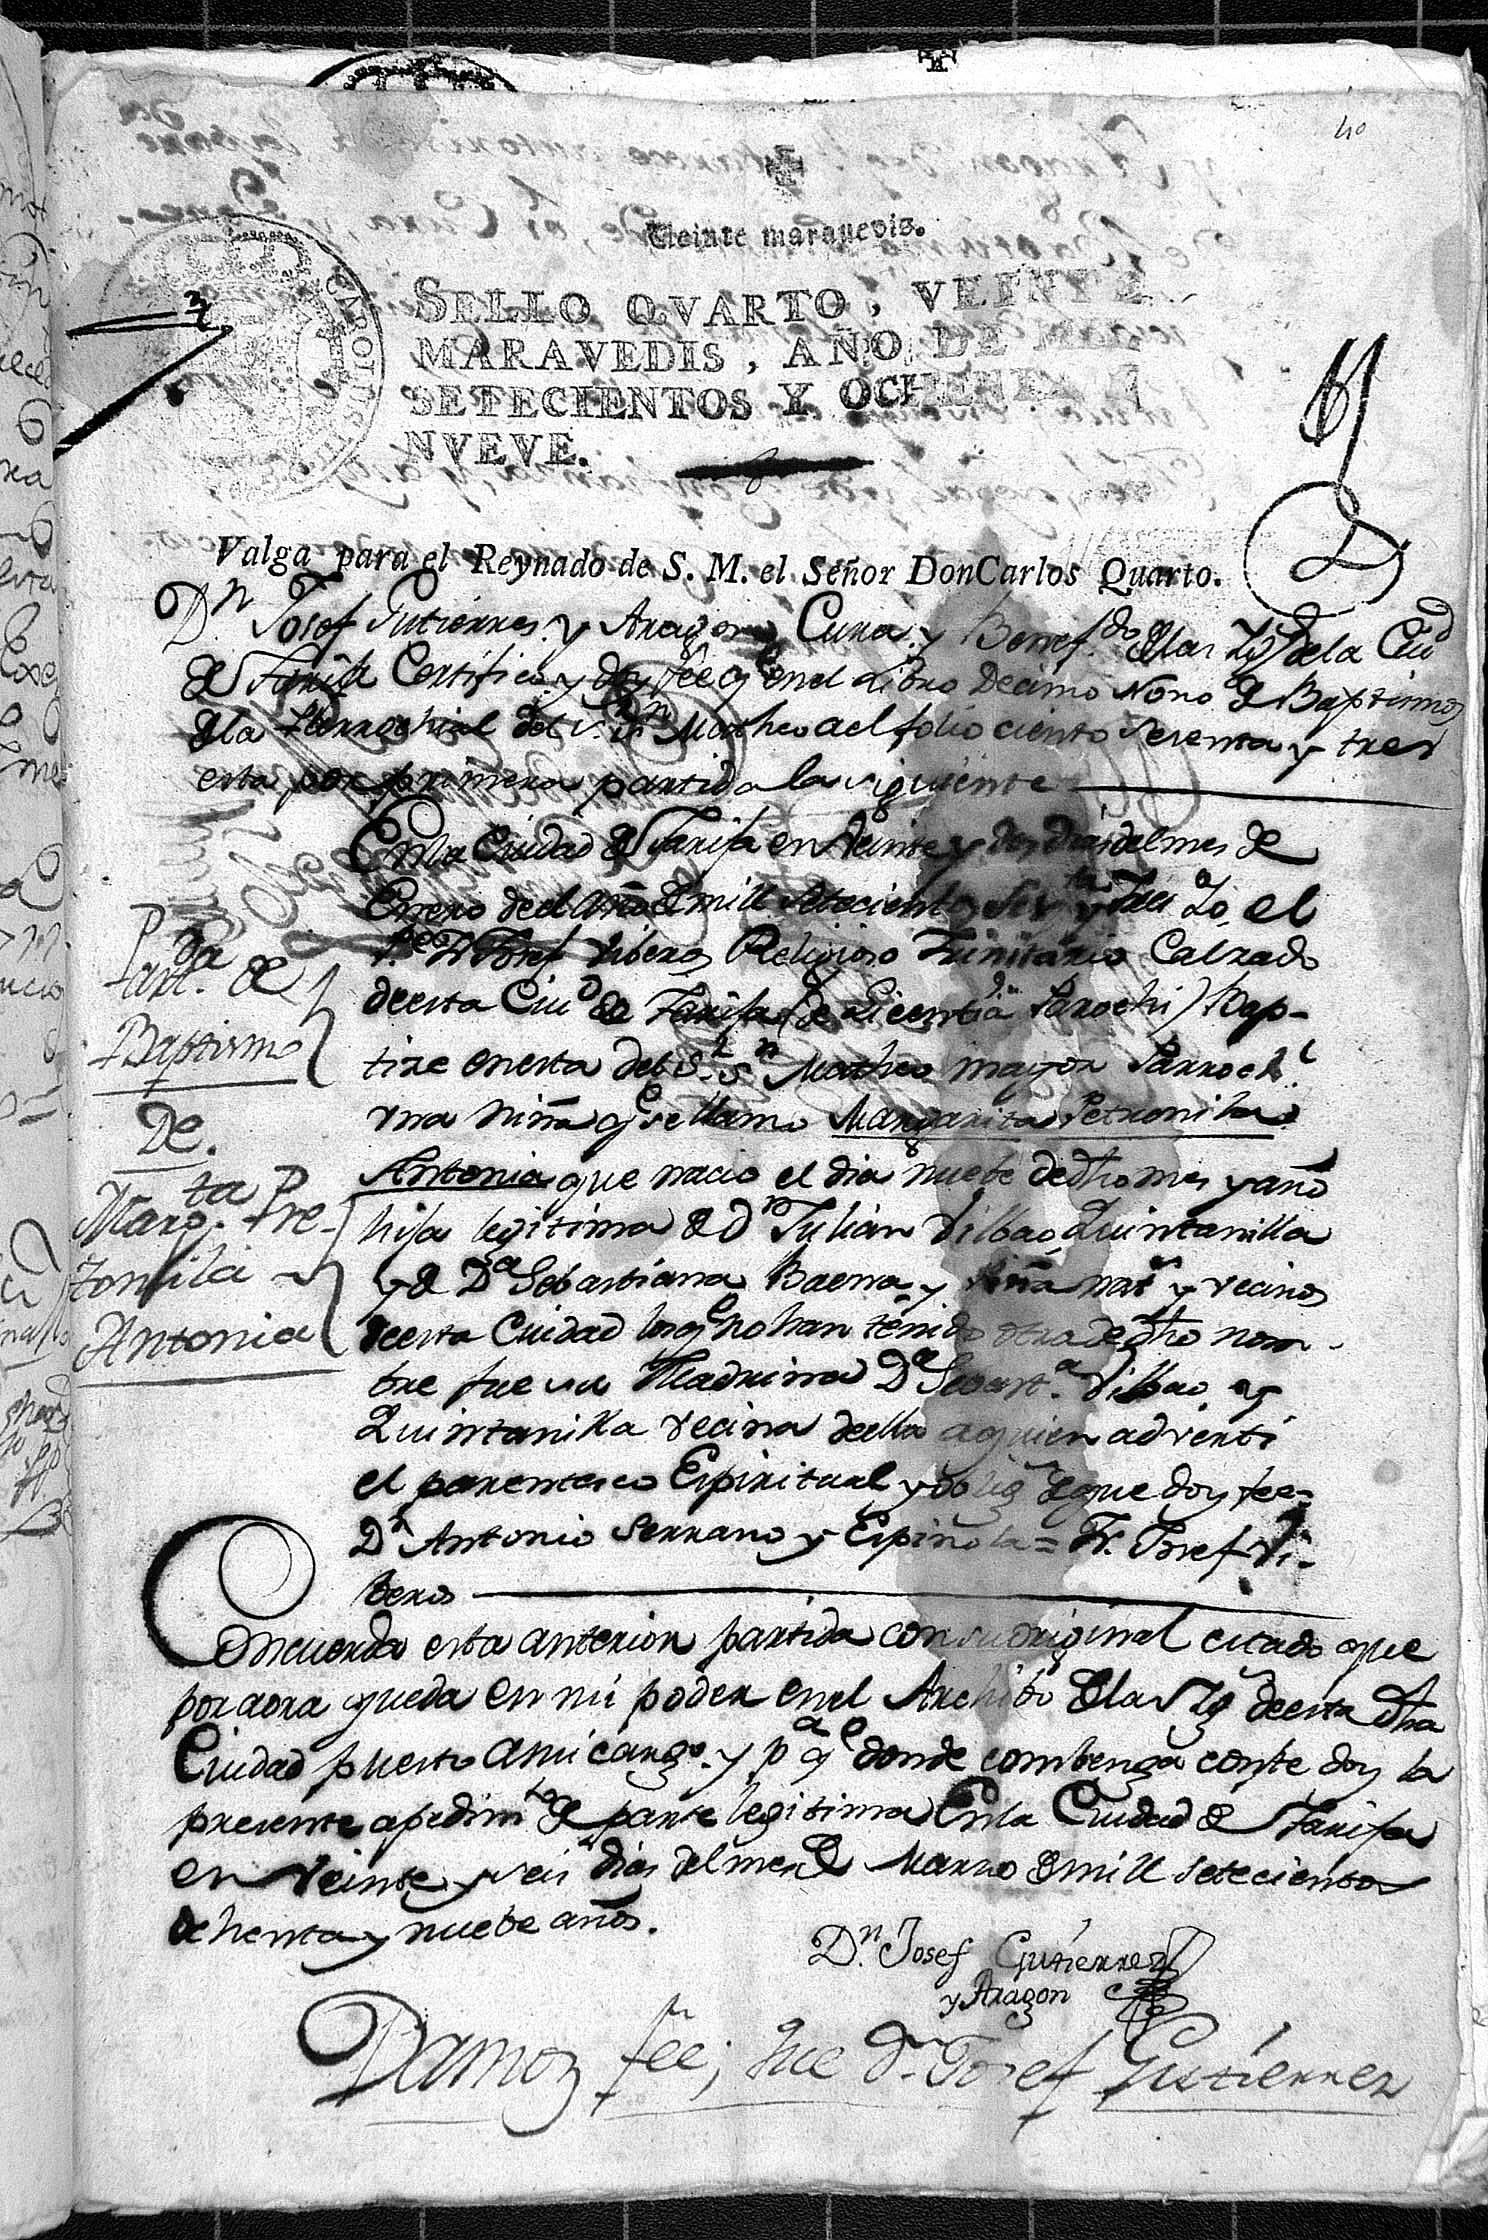 40
Veinte maravedis.
SELLO QVARTO, VEINTE
MARAVEDIS, AÑO DE MIL
SETECIENTOS Y OCHENTA Y
NVEVE.
Valga para el Reynado de S. M. el Señor Don Carlos Quarto.
Dn Josef Gutierres y Aragon Cura y Benefdo de las Igs de la Ciud
de Tarifa Certifico y doy fee qe en el Libro Decimo Nono de Baptismos
de la Parrochial del Sr Sn Matheo al folio ciento sesenta y tres
esta por primera partida la siguiente
Partda de
Baptismo
De.
Margta Pe-
tronila
Antonia
En la Ciudad de Tarifa en veinte y dos dias del mes de
Enero de el año de mill setecientos sesta y tres Io el
Fr Josef Riberos Religioso Trinitario Calzado
de esta Ciud de Tarifa (de Licentia Parochi) Bap-
tize en esta del Sr Sn Matheo mayor Parrochl
vna niña qe se llamo Margarita Petronila
Antonia que nacio el dia nuebe de dho mes y año
hija legitima de Dn Julian Vilbao Quintanilla
y de Da Sebastiana Baena y nats y vecinos
de esta Ciudad los qe no han tenido otra de dho nom-
bre fue su Madrina Da Sebasta Vilbao y
Quintanilla vecina de ella a quien adverti
el parentesco Espiritual y oblig de que doy fee=
Dn Antonio Serrano y Espinola = Fr. Josef Ri-
beros
Concuerda esta anterior partida con su original citado que
por aora queda en mi poder en el Archibo de las Igs de esta dha
Ciudad puesto a mi cargo y pa qe donde combenga conste doy la
presente a pedimto de parte legitima En la Ciudad de Tarifa
en veinte y seis dias del mes de Marzo de mill setecientos
ochenta y nuebe años.
Dn Josef Gutierrez
y Aragon
Damos fee; Que Dn Josef Gutierrez